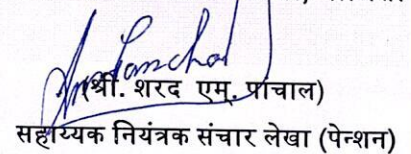 (श्री. शरद एम. पांचाल)
सहाय्यक नियंत्रक संचार लेखा (पेन्शन)